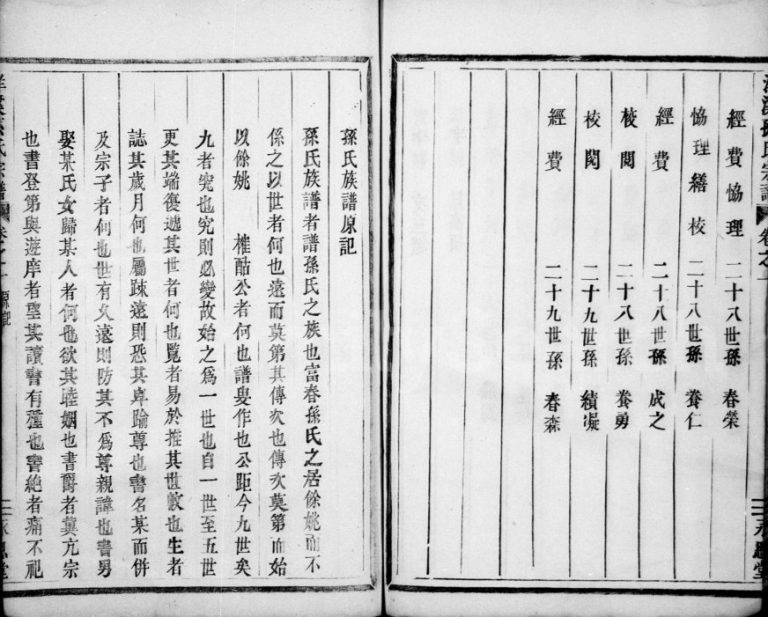 經費協理　二十八世孫　春榮
協理繕校　二十八世孫　養仁
經費　二十八世孫　成之
校閱　二十八世孫　養勇
校閱　二十九世孫　績凝
經費　二十九世孫　春森
孫氏族譜原記
孫氏族譜者譜孫氏之族也富春孫氏之居餘姚而不
係之以世者何也遠而莫第其傳次也傳次莫第而始
以餘姚　榷酤公者何也譜叟作也公距今九世矣
九者究也究則必變故始之爲一世也自一世至五世
更其端復遞其世者何也覽者易於推其世數也生者
誌其歲月何也屬踈遠則恐其卑踰尊也書名某而併
及宗子者何也世有久遠則防其不爲尊親諱也書男
娶某氏女歸某人者何也欲其睦姻也書爵者冀亢宗
也書登第與遊庠者望其讀書有種也書絶者痛不祀
氏宗譜　卷之一　原記　二　永思堂